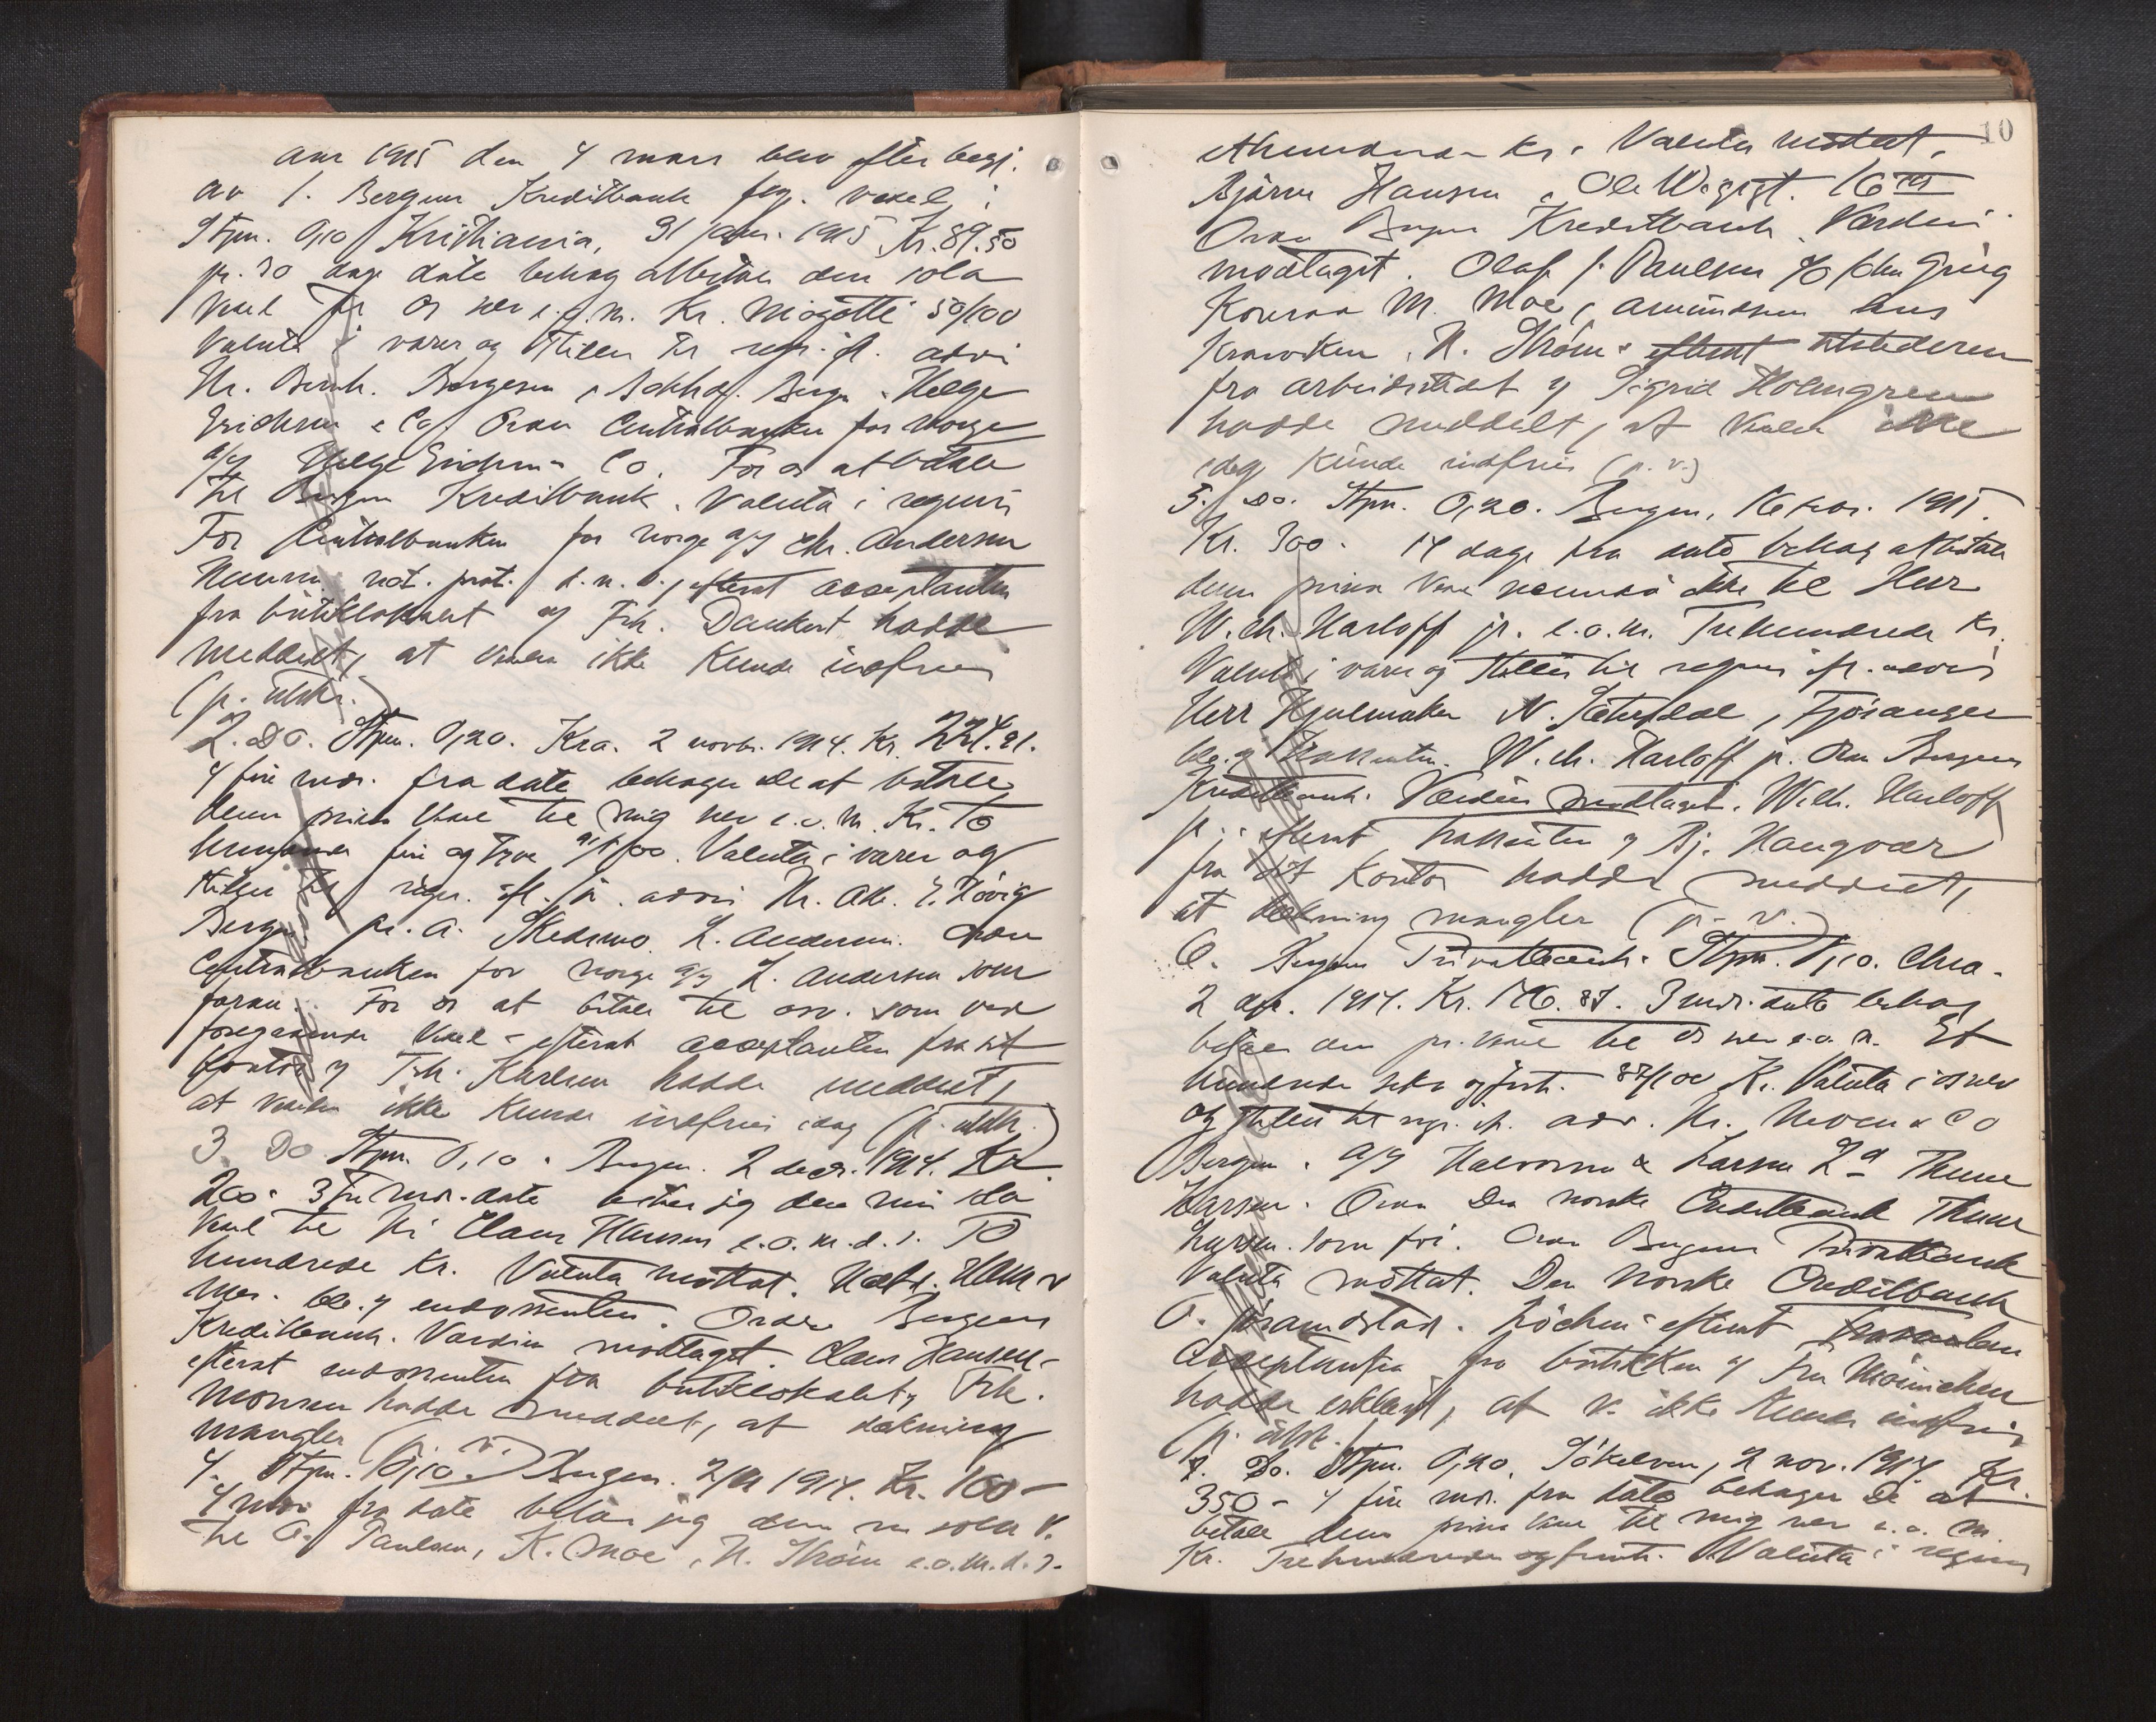 Aar 1915 den 4 mars blev efter begj.
av 1. Bergens Kreditbank flg. vexel i
Stpm. 0,10 Kristiania, 31 jan. 1915 Kr. 89.50
pr. 30 dage dato behag at betale den sola
vexel for os her e. o. m. Kr. niogotti 50/100
Valuta i varer og stilles til regn. ifl. advi
Hr. Bernh. Borgesen, Bergen. Helge
Erichsen & Co. Ordre Centralbanken for Norge
a/s Helge Erichsen & Co. For os at betale
til Bergens Kreditbank. Valuta i regning
For Centralbanken for Norge a/s Chr. Andersen
not. prot. efterat acceptanten
fra butiklokalet og Frk. Dankert hadde
meddelt, at vexlen ikke kunde indfries
(p. utst.)
2. Do. Stpm. 0,20. Kra. 2 novbr. 1914. Kr. 224.91.
4 fire mdr. fra dato behager De at betale
denne prima vexel til mig her e. o. m. Kr. To
hundrede fire og tyve 91/100. Valuta i varer og
stilles til regn. ifl. advi Hr. E. Høvig
Bergen pr. a. Skedsmo. L. Andersen. Ordre
Centralbanken for Norge a/s L. Andersen som
foran. For os at betale til osv. som ved
foregaaende vexel - efterat acceptanten fra sit
kontor og Frk. Karlsen hadde meddelt,
at vexlen ikke kunde indfries idag (p. utst.)
3. Do. Stpm. 0,10. Bergen. 2 decr. 1914. Kr.
200. 3 tre mdr. dato betaler jeg denne min sola
vexel til Hr. Claus Hansen e. o. m. d. s. To
hundrede Kr. Valuta mottat.
endossenten. Ordre Bergens
Kreditbank. Værdien modtaget. Claus Hansen -
efterat endossenten fra butiklokalet og Frk.
Monsen hadde meddelt, at dækning
mangler (p. v.)
4. Stpm. 0,10. Bergen. 2/11 1914. Kr. 100 -
4 mdr. fra dato betaler jeg denne min sola v.
til O. Paulsen, K. Moe, N. Strøm e. o. m. d. s.
10
Ethundrede kr. Valuta mottat.
Bjarne Hansen, Ole
Ordre Bergens Kreditbank. Værdien
modtaget. Olaf J. Paulsen c/o John Grieg
Konrad M. Moe, Amundsen hus
N. Strøm - efterat utstederen
fra arbeidsstedet og Sigrid Holmgren
hadde meddelt, at vexlen ikke
idag kunde indfries (p. v.)
5. Do. Stpm. 0,20. Bergen, 16 febr. 1915.
Kr. 300. 14 dage fra dato behag at betale
denne prima vexel secunda ikke til Herr
W. Ch. Harloff jr. e. o. m. Trehundrede Kr.
Valuta i varer og stilles til regning ifl. advis
Herr Hjulmaker N. Sætersdal, Fjøsanger
bl. og trassenten. W. Ch. Harloff jr. Ordre Bergens
Kreditbank. Værdien modtaget. Wilh. Harloff
jr. efterat trassenten og Bj. Haugvær
fra sit kontor hadde meddelt,
at dækning mangler (p. v.)
6. Bergens Privatbank. Stpm. 0,10. Chra.
2 1914. Kr. 146.87. 3 mdr. dato behag
betale den pr. vexel til os her e. o. m. Et
hundrede seks og førti. 87/100 Kr. Valuta i varer
og stilles til regn. ifl. adv. Hr. & Co
Bergen. a/s Halvorsen & Larsen Ld Thune
Larsen. Ordre Den norske Creditbank Thune
Larsen. som før. Ordre Bergens Privatbank
Valuta mottat. Den norske Creditbank
O. efterat
acceptanten fra butikken og Fru
hadde erklært, at v. ikke kunde indfries
(p. utst.)
7. Do. Stpm. 0,20. Søkelven, 2 nov. 1914. Kr.
350 - 4 fire mdr. fra dato behager De at
betale denne prima vexel til mig her e. o. m.
Kr. Trehundrede og femti. Valuta i regning